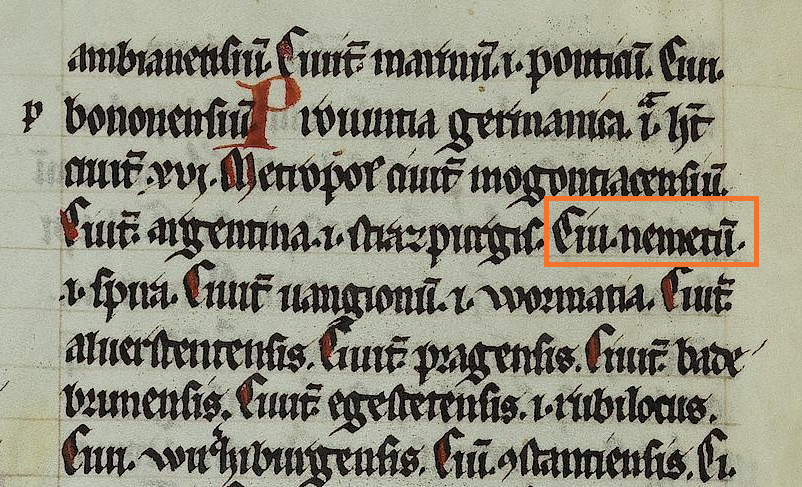 ambianensiū. Ciuit̄. marinū .i. ponticū. Ciui.
p bononensiū Prouintia germanica. i.ᵃ hт̄
ciuit̄. xvi. Metropoł ciuit̄ mogontiacensiū.
Ciuit̄. argentina .i. straz purgis. Ciu. nemetū.
.i. spira. Ciuit̄ uangionū .i. wormatia. Ciuit̄.
aluerstentensis. Ciuit̄. pragensis. Ciuit̄. bade
brunensis. Ciuit̄. egestetensis .i. rubilocus.
Ciui. wirziburgensis. Ciū. ꝯstantiensis. Ci.